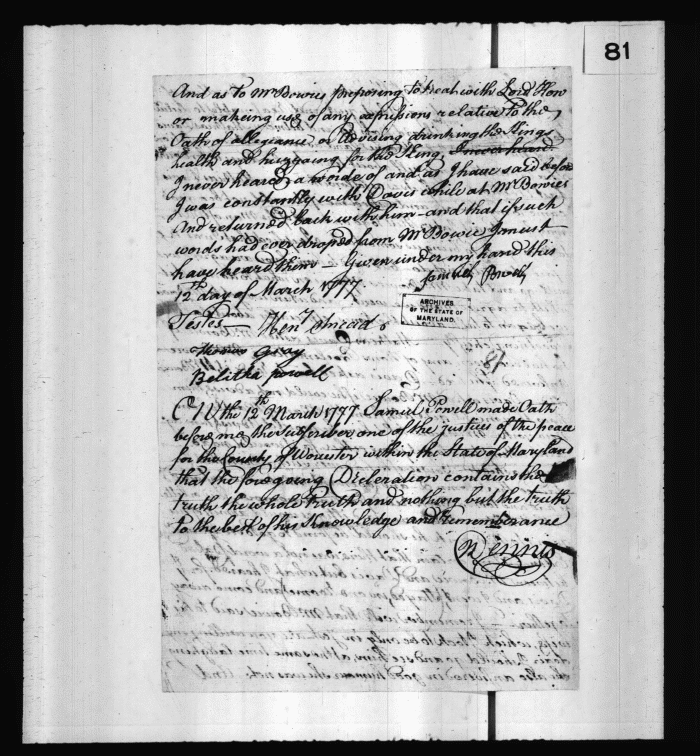 81
And as to Mr Bowies proposing to treat with Lord How
or makeing use of any expressions relative to the
Oath of allegiance or advising drinking the Kings
health and huzzaing for the King,
I never heard a worde of and as I have said before
I was constantly with Davis while at Mr Bowies
And returned back with him - and that if such
words had ever droped from Mr Bowie I must
have heard them - Given under my hand this
12th day of March 1777.
Samuel Powell
ARCHIVES
OF THE STATE OF
MARYLAND.
Testes - Henry
Thomas Gray
Belitha Powell
On the 12th March 1777 Samuel Powell made Oath
before me, the subscriber one of the justices of the peace
for the County of Worcester within the State of Maryland
that the foregoing Decleration contains the
truth the whole truth and nothing but the truth
to the best of his Knowledge and rememberance
Dennis